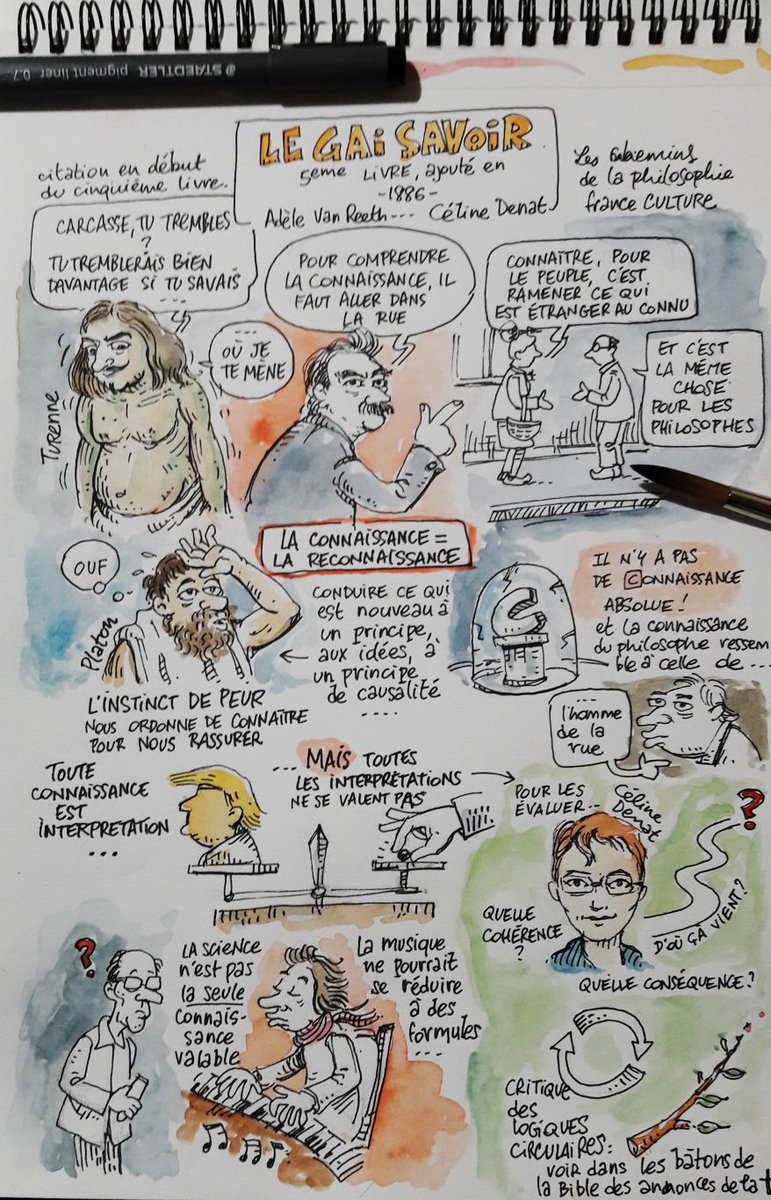 STAEDTLER pigment liner 0.7
LE GAI SAVOIR
5eme LIVRE, ajouté en
-1886-
Adèle Van Reeth --- Céline Denat
citation en début
du cinquième livre.
Les
de la philosophie
france CULTURE
CARCASSE, TU TREMBLES
?
TU TREMBLERAIS BIEN
DAVANTAGE SI TU SAVAIS
...
OÙ JE
TE MÈNE
TURENNE
POUR COMPRENDRE
LA CONNAISSANCE, IL
FAUT ALLER DANS
LA RUE
CONNAÎTRE, POUR
LE PEUPLE, C'EST
RAMENER CE QUI
EST ÉTRANGER AU CONNU
ET C'EST
LA MÊME
CHOSE
POUR LES
PHILOSOPHES
LA CONNAISSANCE =
LA RECONNAISSANCE
OUF
Platon
CONDUIRE CE QUI
EST NOUVEAU À
UN PRINCIPE,
AUX IDÉES, À
UN PRINCIPE
DE CAUSALITÉ
....
L'INSTINCT DE PEUR
NOUS ORDONNE DE CONNAÎTRE
POUR NOUS RASSURER
C
IL N'Y A PAS
DE CONNAISSANCE
ABSOLUE!
et la connaissance
du philosophe ressem
ble à celle de ...
l'homme
de la
rue
TOUTE
CONNAISSANCE
EST
INTERPRETATION
...
... MAIS TOUTES
LES INTERPRÉTATIONS
NE SE VALENT PAS
POUR LES
ÉVALUER...
Céline
Denat
?
QUELLE
COHÉRENCE
?
D'OÙ ÇA VIENT?
QUELLE CONSÉQUENCE?
?
LA SCIENCE
N'EST PAS
la seule
connais-
sance
valable
La musique
ne pourrait
se réduire
à des
formules
...
CRITIQUE
des
LOGIQUES
CIRCULAIRES:
voir dans les bâtons de
la Bible des annonces de la